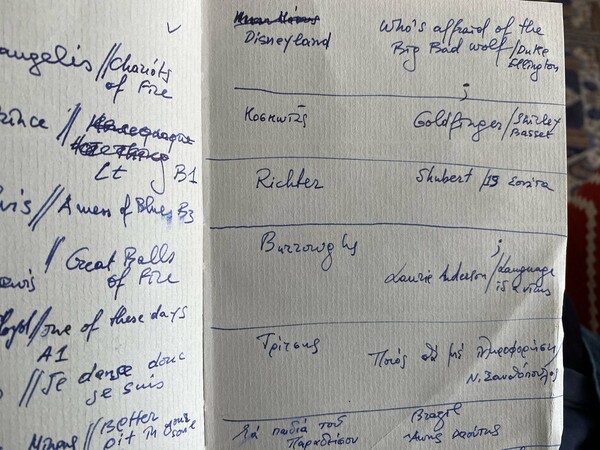 angelis // Chariots
of Fire
rince //
Lt B1
vis // A mess of Blues B3
ewis // Great Balls
of Fire
loyd / one of these days
A1
// Je danse donc
je suis
Mingus // Better
git in your
soul
Disneyland
Who's affraid of the
Big Bad wolf / Duke
Ellington
;
Κοσκωτάς
Goldfinger / Shirley
Bassey
Richter
Shubert / 19 Σονάτα
Burroughs
;
Laurie Anderson / Language
is a virus
Τρίτσης
Ποιός θα με πληροφορήσει
Ν. Ξανθόπουλος
Τα παιδιά του
Παραδείσου
Brazil